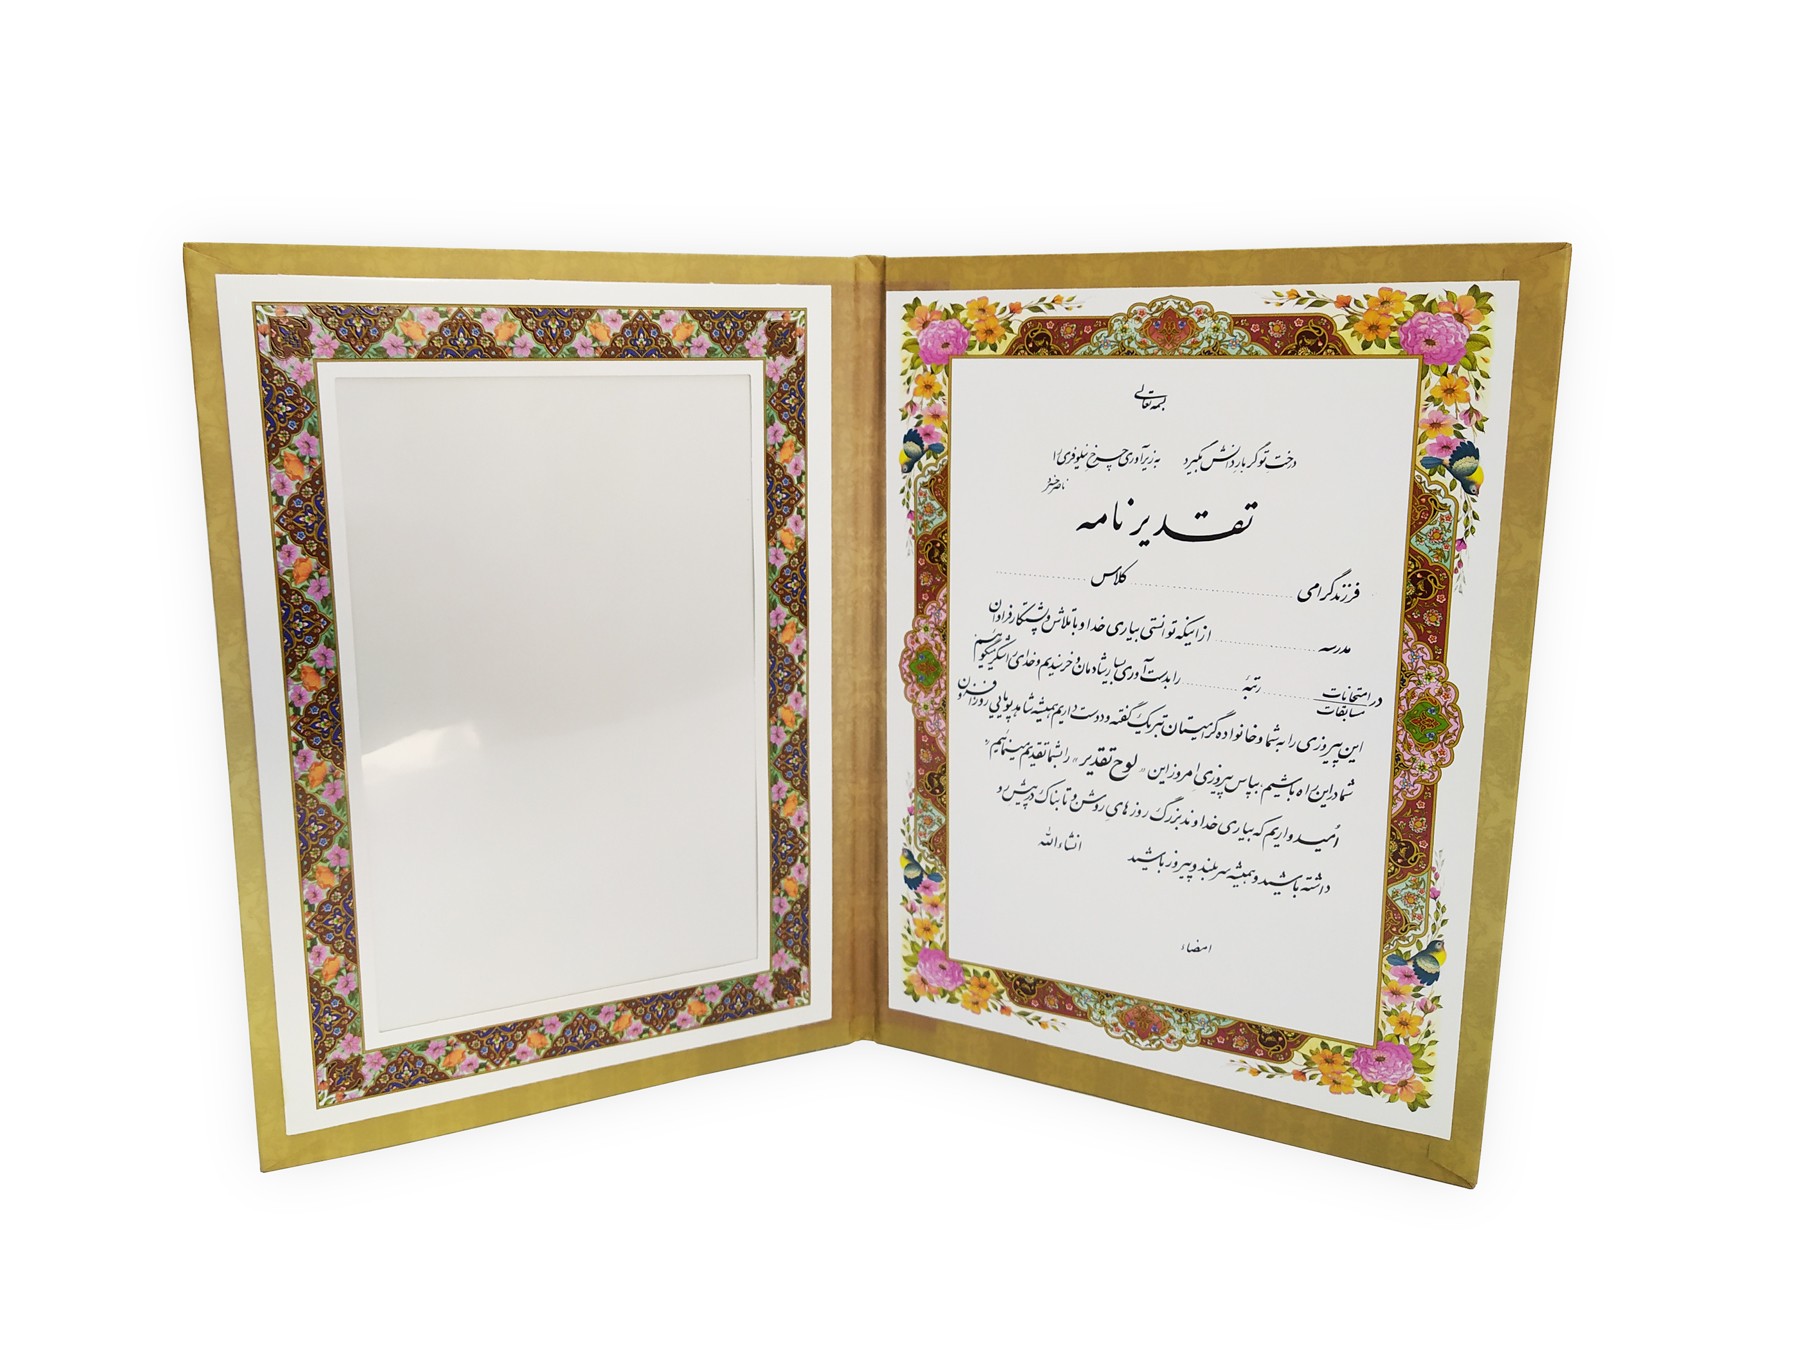 بسمه تعالی
درختِ تو گر بارِ دانش بگیرد به زیر آوری چرخِ نیلوفری را
ناصر خسرو
تقدیرنامه
فرزند گرامی ........ کلاس ........
مدرسه ........ از اینکه توانستی بیاری خدا و با تلاش و پشتکار فراوان
در امتحانات ........ رتبهٔ ........ را بدست آوری بسیار شادمان و خرسندیم و خدای را شکر میگوئیم
مسابقات
این پیروزی را به شما و خانواده گرامیتان تبریک گفته و دوست داریم همیشه شاهد پویایی روزافزون
شما در این راه باشیم، بپاس پیروزیِ امروز این «لوح تقدیر» را بشما تقدیم مینمائیم،
اُمیدواریم که بیاری خداوند بزرگ روزهایِ روشن و تابناک در پیش رو
داشته باشید و همیشه سربلند و پیروز باشید انشاءالله
امضاء